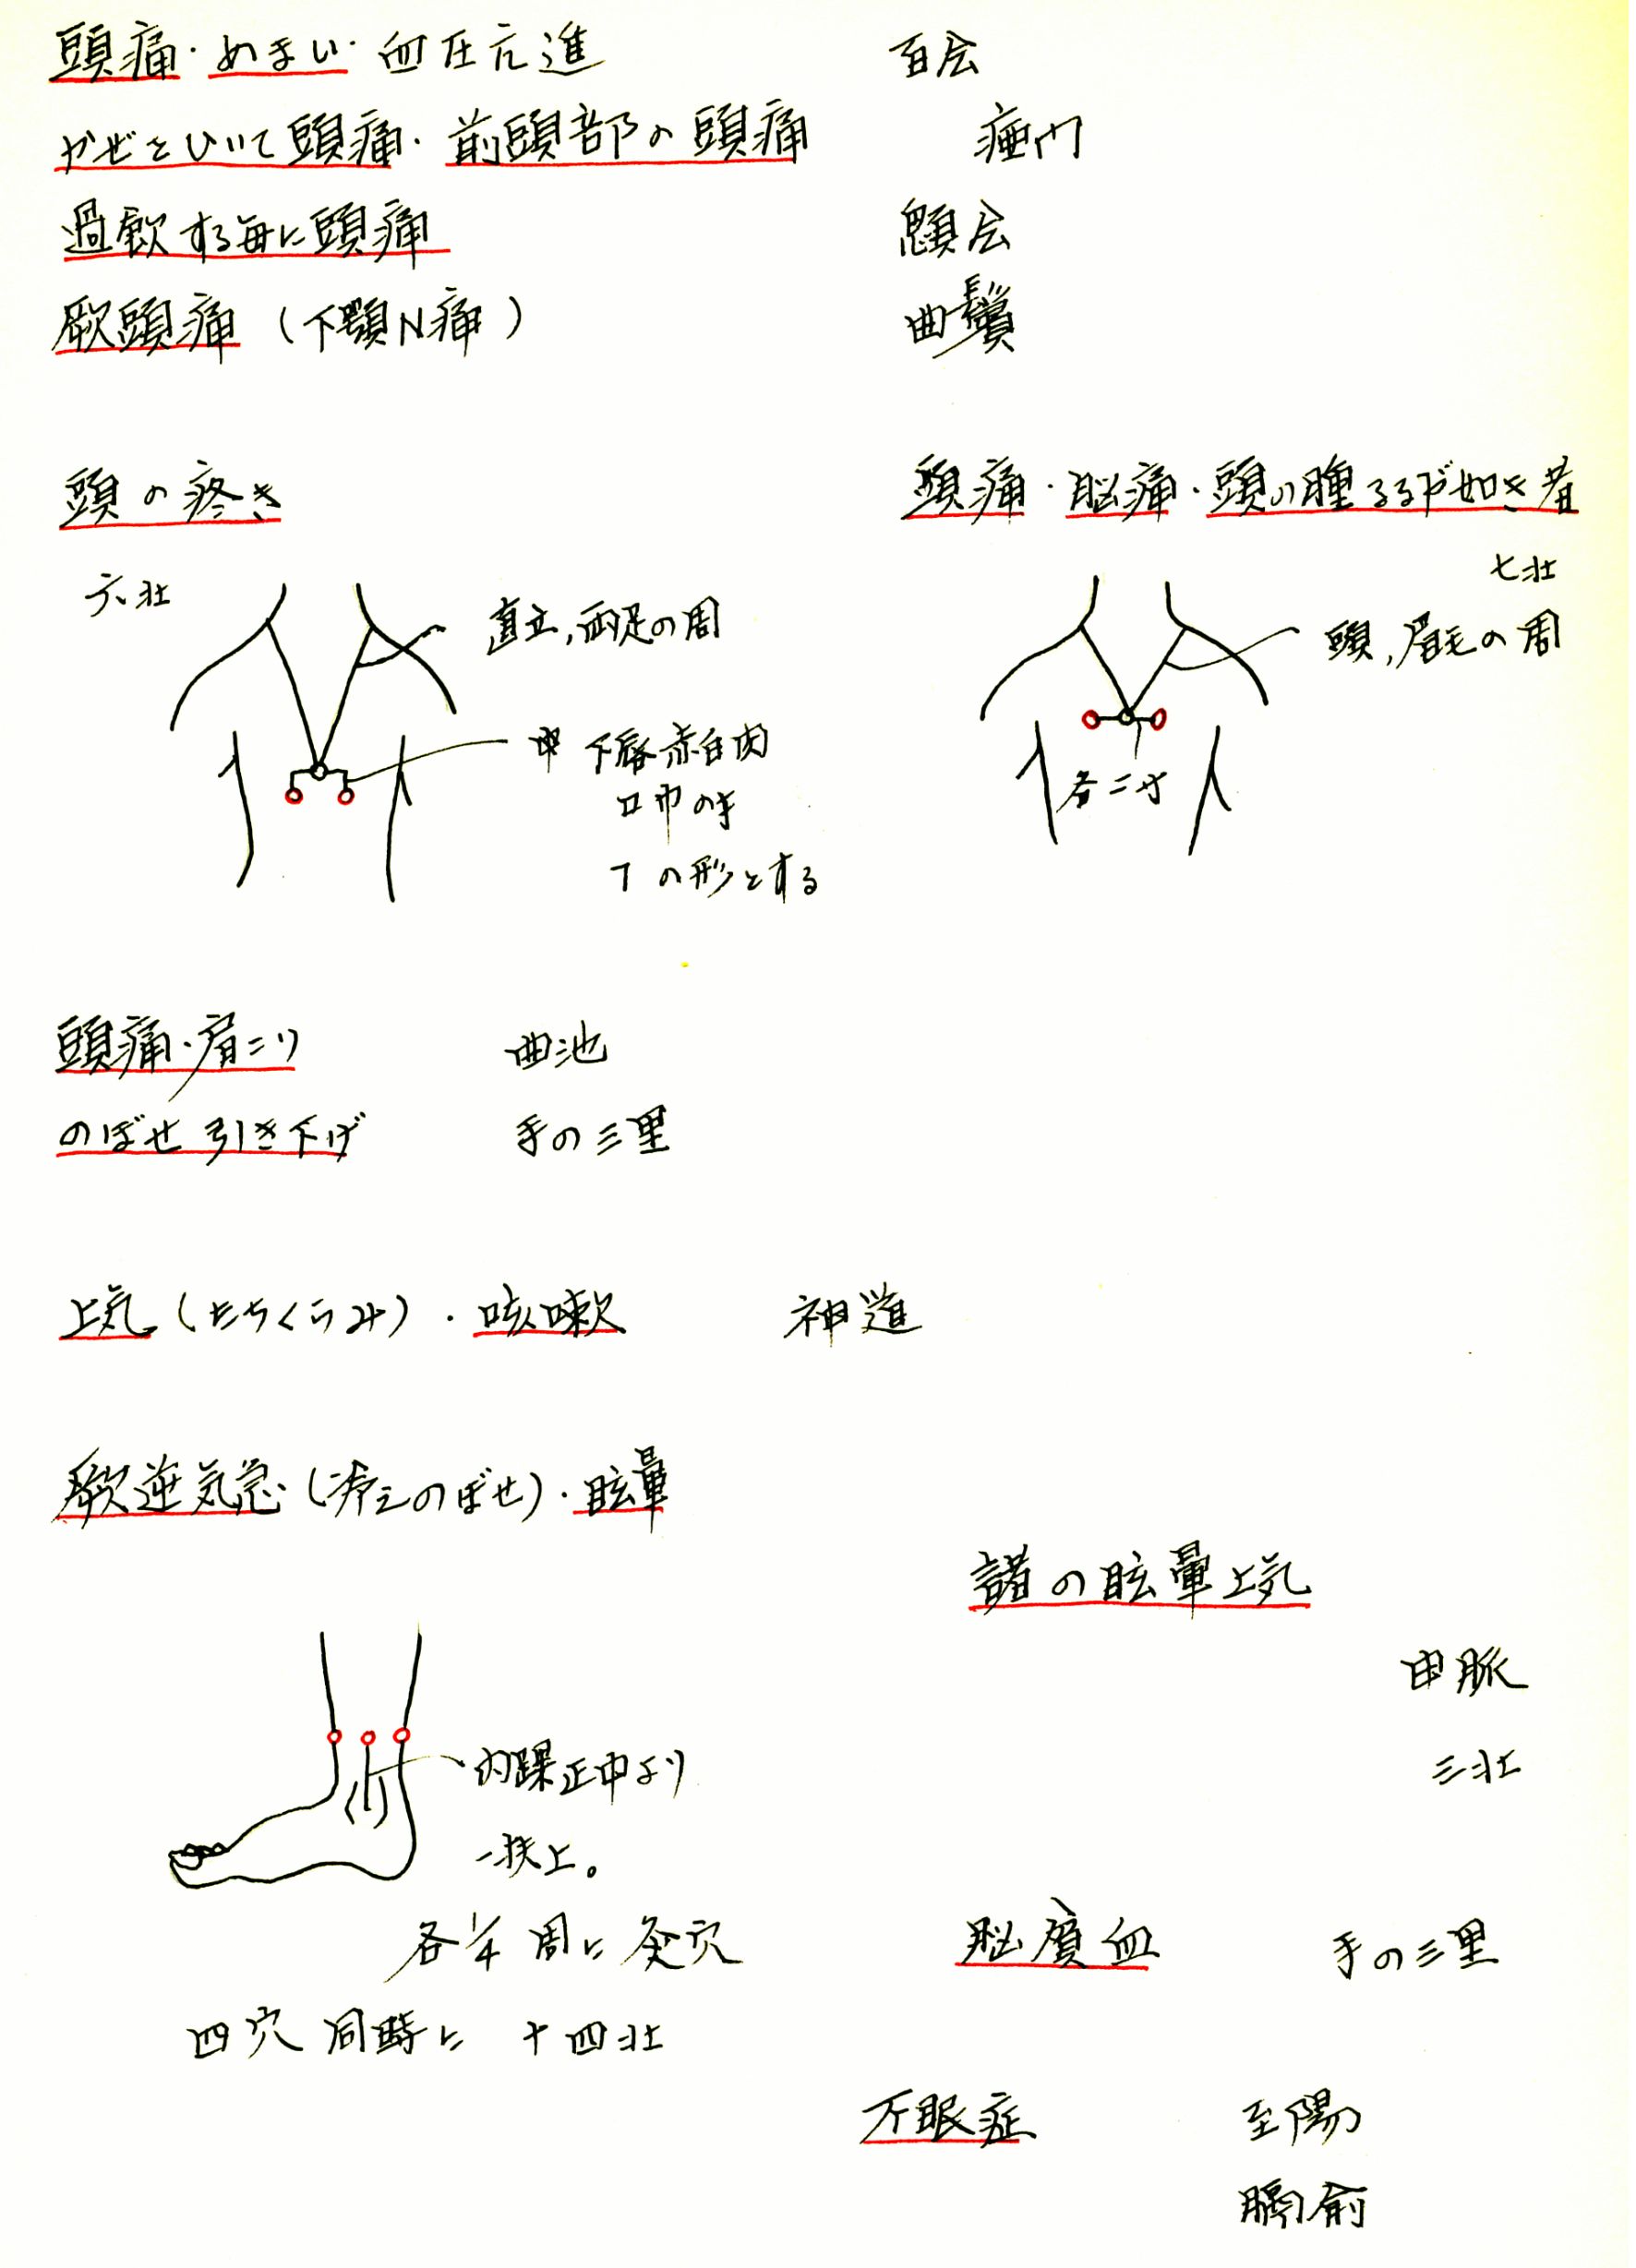 頭痛・めまい・血圧亢進 百会
かぜをひいて頭痛・前頭部の頭痛 瘂門
過飲する毎に頭痛 顖会
厥頭痛（下顎N痛） 曲鬢
頭の疼き
六壮
直立,両足の周
下唇赤白肉
口巾の半
Tの形とする
頭痛・脳痛・頭の腫るるが如き者
七壮
頭,眉毛の周
各二寸
頭痛・肩こり 曲池
のぼせ引き下げ 手の三里
上気（たちくらみ）・咳嗽 神道
厥逆気急（冷えのぼせ）・眩暈
内踝正中より
一扶上。
各1/4周に灸穴
四穴同時に 十四壮
諸の眩暈上気
申脈
三壮
脳貧血 手の三里
不眠症 至陽
膈兪